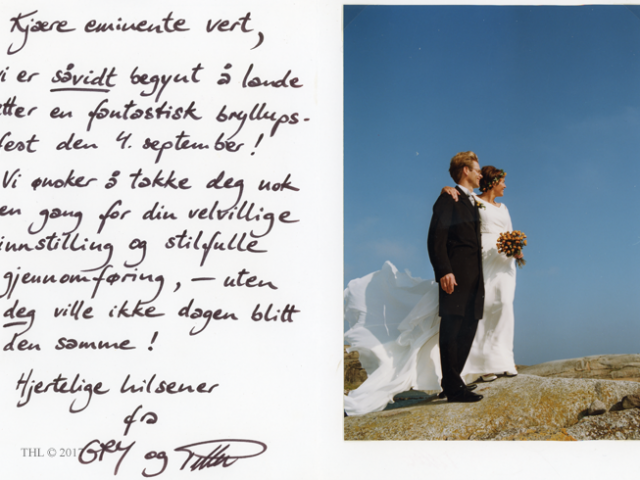 Kjære eminente vert,
vi er såvidt begynt å lande
etter en fantastisk bryllups-
fest den 4. september!
Vi ønsker å takke deg nok
en gang for din velvillige
innstilling og stilfulle
gjennomføring, – uten
deg ville ikke dagen blitt
den samme!
Hjertelige hilsener
fra
GRY og
THL © 2017